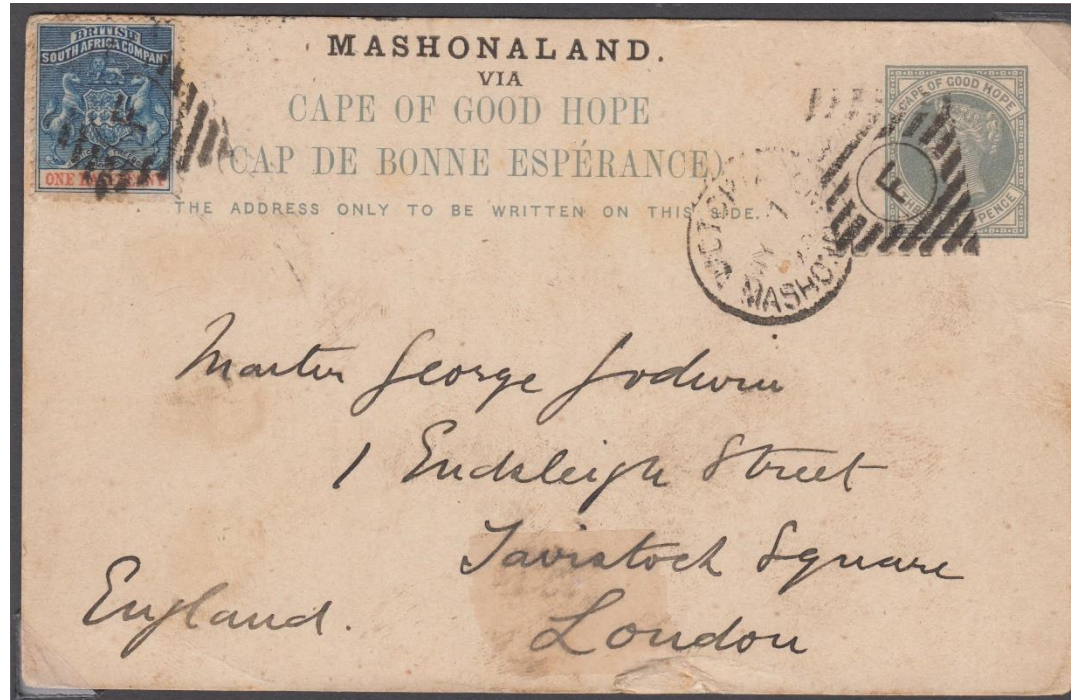 BRITISH
SOUTH AFRICA COMPANY
ONE HALF PENNY
MASHONALAND.
VIA
CAPE OF GOOD HOPE
(CAP DE BONNE ESPÉRANCE)
THE ADDRESS ONLY TO BE WRITTEN ON THIS SIDE.
CAPE OF GOOD HOPE
PENCE
F
MASHONA
Master George Godwin
1 Endsleigh Street
Tavistock Square
London
England.